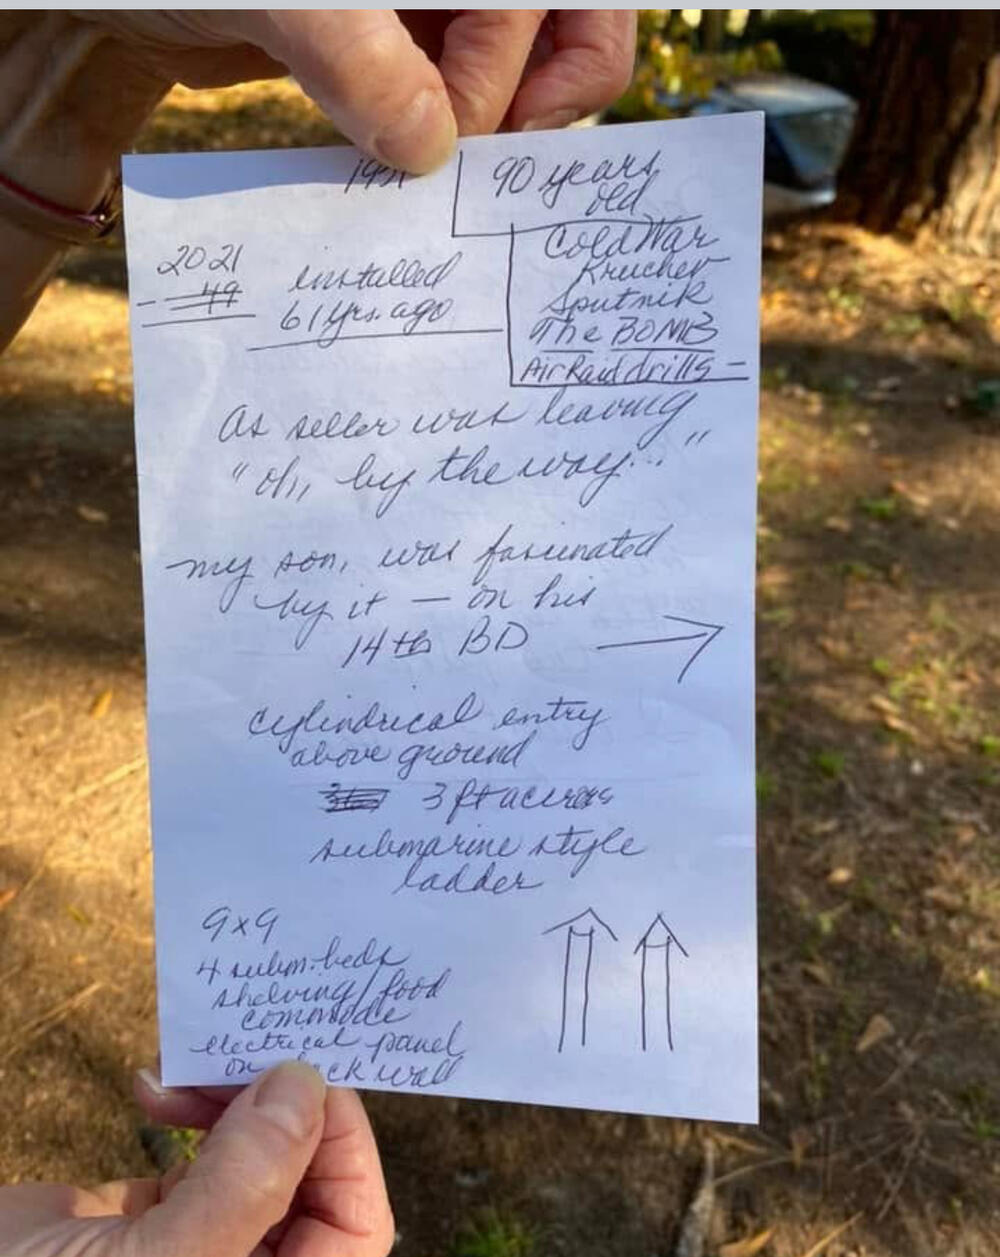 1931
90 years
old
Cold War
Kruchev
Sputnik
The BOMB
Air Raid drills —
2021
- 49
installed
61 yrs. ago
As seller was leaving
"oh, by the way..."
my son, was fascinated
by it — on his
14th BD →
cylindrical entry
above ground
3 ft across
submarine style
ladder
9x9
4 subm. beds
shelving/food
commode
electrical panel
on back wall